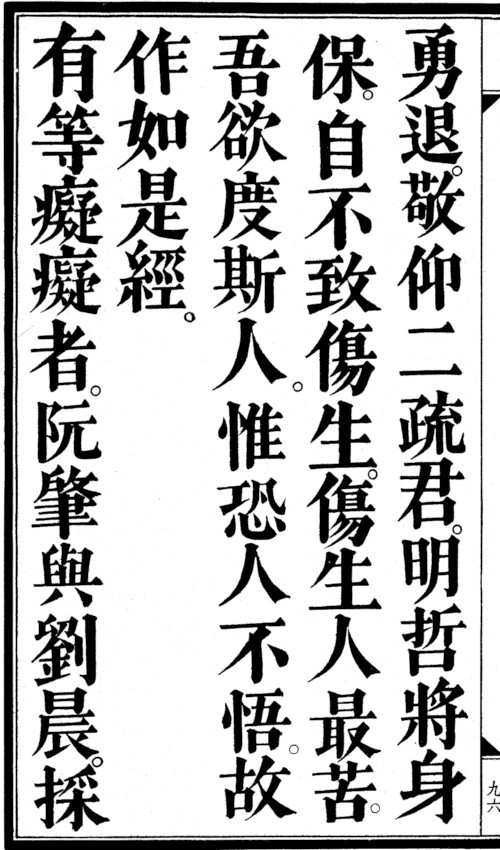 勇退。敬仰二疏君。明哲將身
保。自不致傷生。傷生人最苦。
吾欲度斯人。惟恐人不悟。故
作如是經。
有等癡癡者。阮肇與劉晨。採
九六